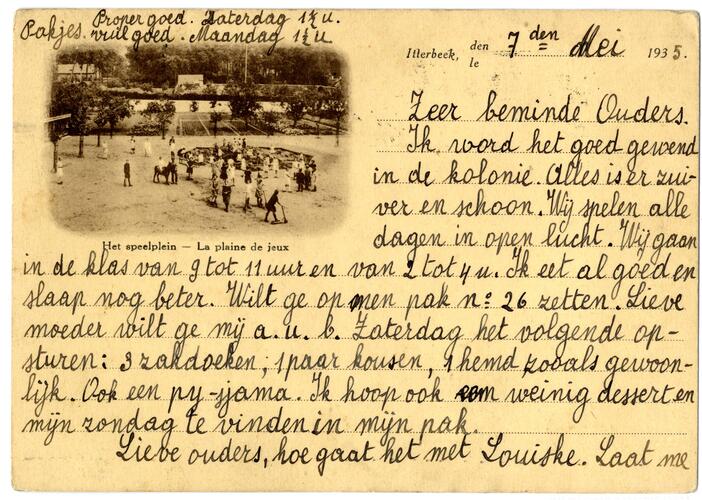 Proper goed. Zaterdag 1½ u.
Pakjes. vuil goed. Maandag 1½ u.
Itterbeek, den
le
7 den Mei 1935.
Zeer beminde Ouders.
Ik word het goed gewend
in de kolonie. Alles is er zui-
ver en schoon. Wij spelen alle
dagen in open lucht. Wij gaan
Het speelplein — La plaine de jeux
in de klas van 9 tot 11 uur en van 2 tot 4 u. Ik eet al goed en
slaap nog beter. Wilt ge op men pak nº 26 zetten. Lieve
moeder wilt ge mij a. u. b. Zaterdag het volgende op-
sturen: 3 zakdoeken, 1 paar kousen, 1 hemd zooals gewoon-
lijk. Ook een py-sjama. Ik hoop ook een weinig dessert en
mijn zondag te vinden in mijn pak.
Lieve ouders, hoe gaat het met Louiske. Laat me